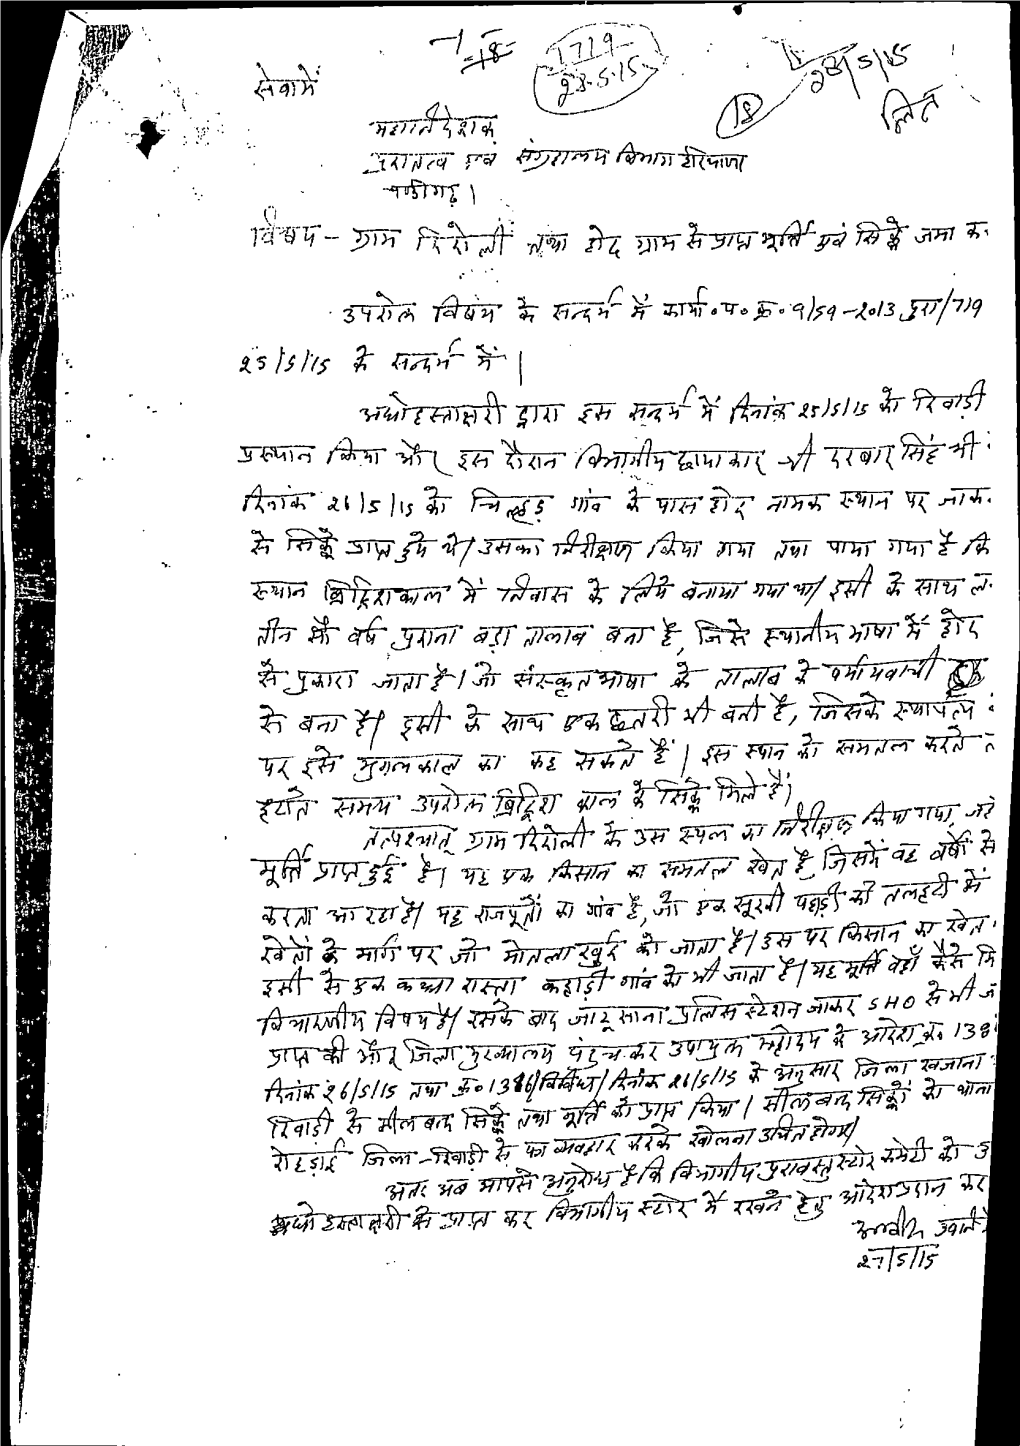 1719
28-5-15
28/5/15
18
सेवा में
महानिदेशक
पुरातत्व एवं संग्रहालय विभाग हरियाणा
चण्डीगढ़।
विषय - ग्राम तथा होद ग्राम से प्राप्त मूर्ति एवं सिक्के जमा क
उपरोक्त विषय के सन्दर्भ में कार्या॰ प॰ क्र॰ 9/59-2013 पुरा/719
25/5/15 के सन्दर्भ में।
अधोहस्ताक्षरी द्वारा इस सन्दर्भ में दिनांक 25/5/15 को रिवाड़ी
प्रस्थान किया और इस दौरान विभागीय छायाकार श्री दरबार सिंह भी
दिनांक 26/5/15 को गांव के पास होद नामक स्थान पर जाक
से सिक्के प्राप्त हुये थे। उसका निरीक्षण किया गया तथा पाया गया है कि
स्थान ब्रिटिशकाल में निवास के लिये बनाया गया था। इसी के साथ ल
तीन सौ वर्ष पुराना बड़ा तालाब बना है, जिसे स्थानीय भाषा में होद
से पुकारा जाता है। जो संस्कृत भाषा के तालाब के पर्यायवाची
से बना है। इसी के साथ एक छतरी भी बनी है, जिसके स्थापत्य
पर इसे मुगलकाल का कह सकते हैं। इस स्थान को समतल करते
समय उपरोक्त ब्रिटिश काल के सिक्के मिले हैं।
तत्पश्चात् ग्राम के उस स्थल का निरीक्षण किया गया, जहां
मूर्ति प्राप्त हुई है। यह एक किसान का समतल खेत है, जिसमें वह वर्षों से
करता आ रहा है। यह राजपूतों का गांव है, जो एक सूखी पहाड़ी की तलहटी में
खेतों के मार्ग पर जो मोतला खुर्द को जाता है। उस पर किसान का खेत
इसी से एक कच्चा रास्ता कहाड़ी गांव को भी जाता है। यह मूर्ति वहाँ कैसे मि
विचारणीय विषय है। इसके बाद जाटूसाना पुलिस स्टेशन जाकर SHO से भी ज
प्राप्त की और जिला मुख्यालय पंहुचकर उपायुक्त महोदय के आदेश क्र॰ 138
दिनांक 26/5/15 तथा क्र॰ 1386/विविध/ दिनांक 26/5/15 के अनुसार जिला खजाना
रिवाड़ी से सीलबन्द सिक्के तथा मूर्ति को प्राप्त किया। सीलबन्द सिक्कों को थाना
रोहड़ाई जिला-रिवाड़ी से पत्र व्यवहार करके खोलना उचित होगा।
अतः अब आपसे अनुरोध है कि विभागीय पुरावस्तु स्टोर कमेटी को
अधोहस्ताक्षरी से प्राप्त कर विभागीय स्टोर में रखने हेतु आदेश प्रदान कर
27/5/15